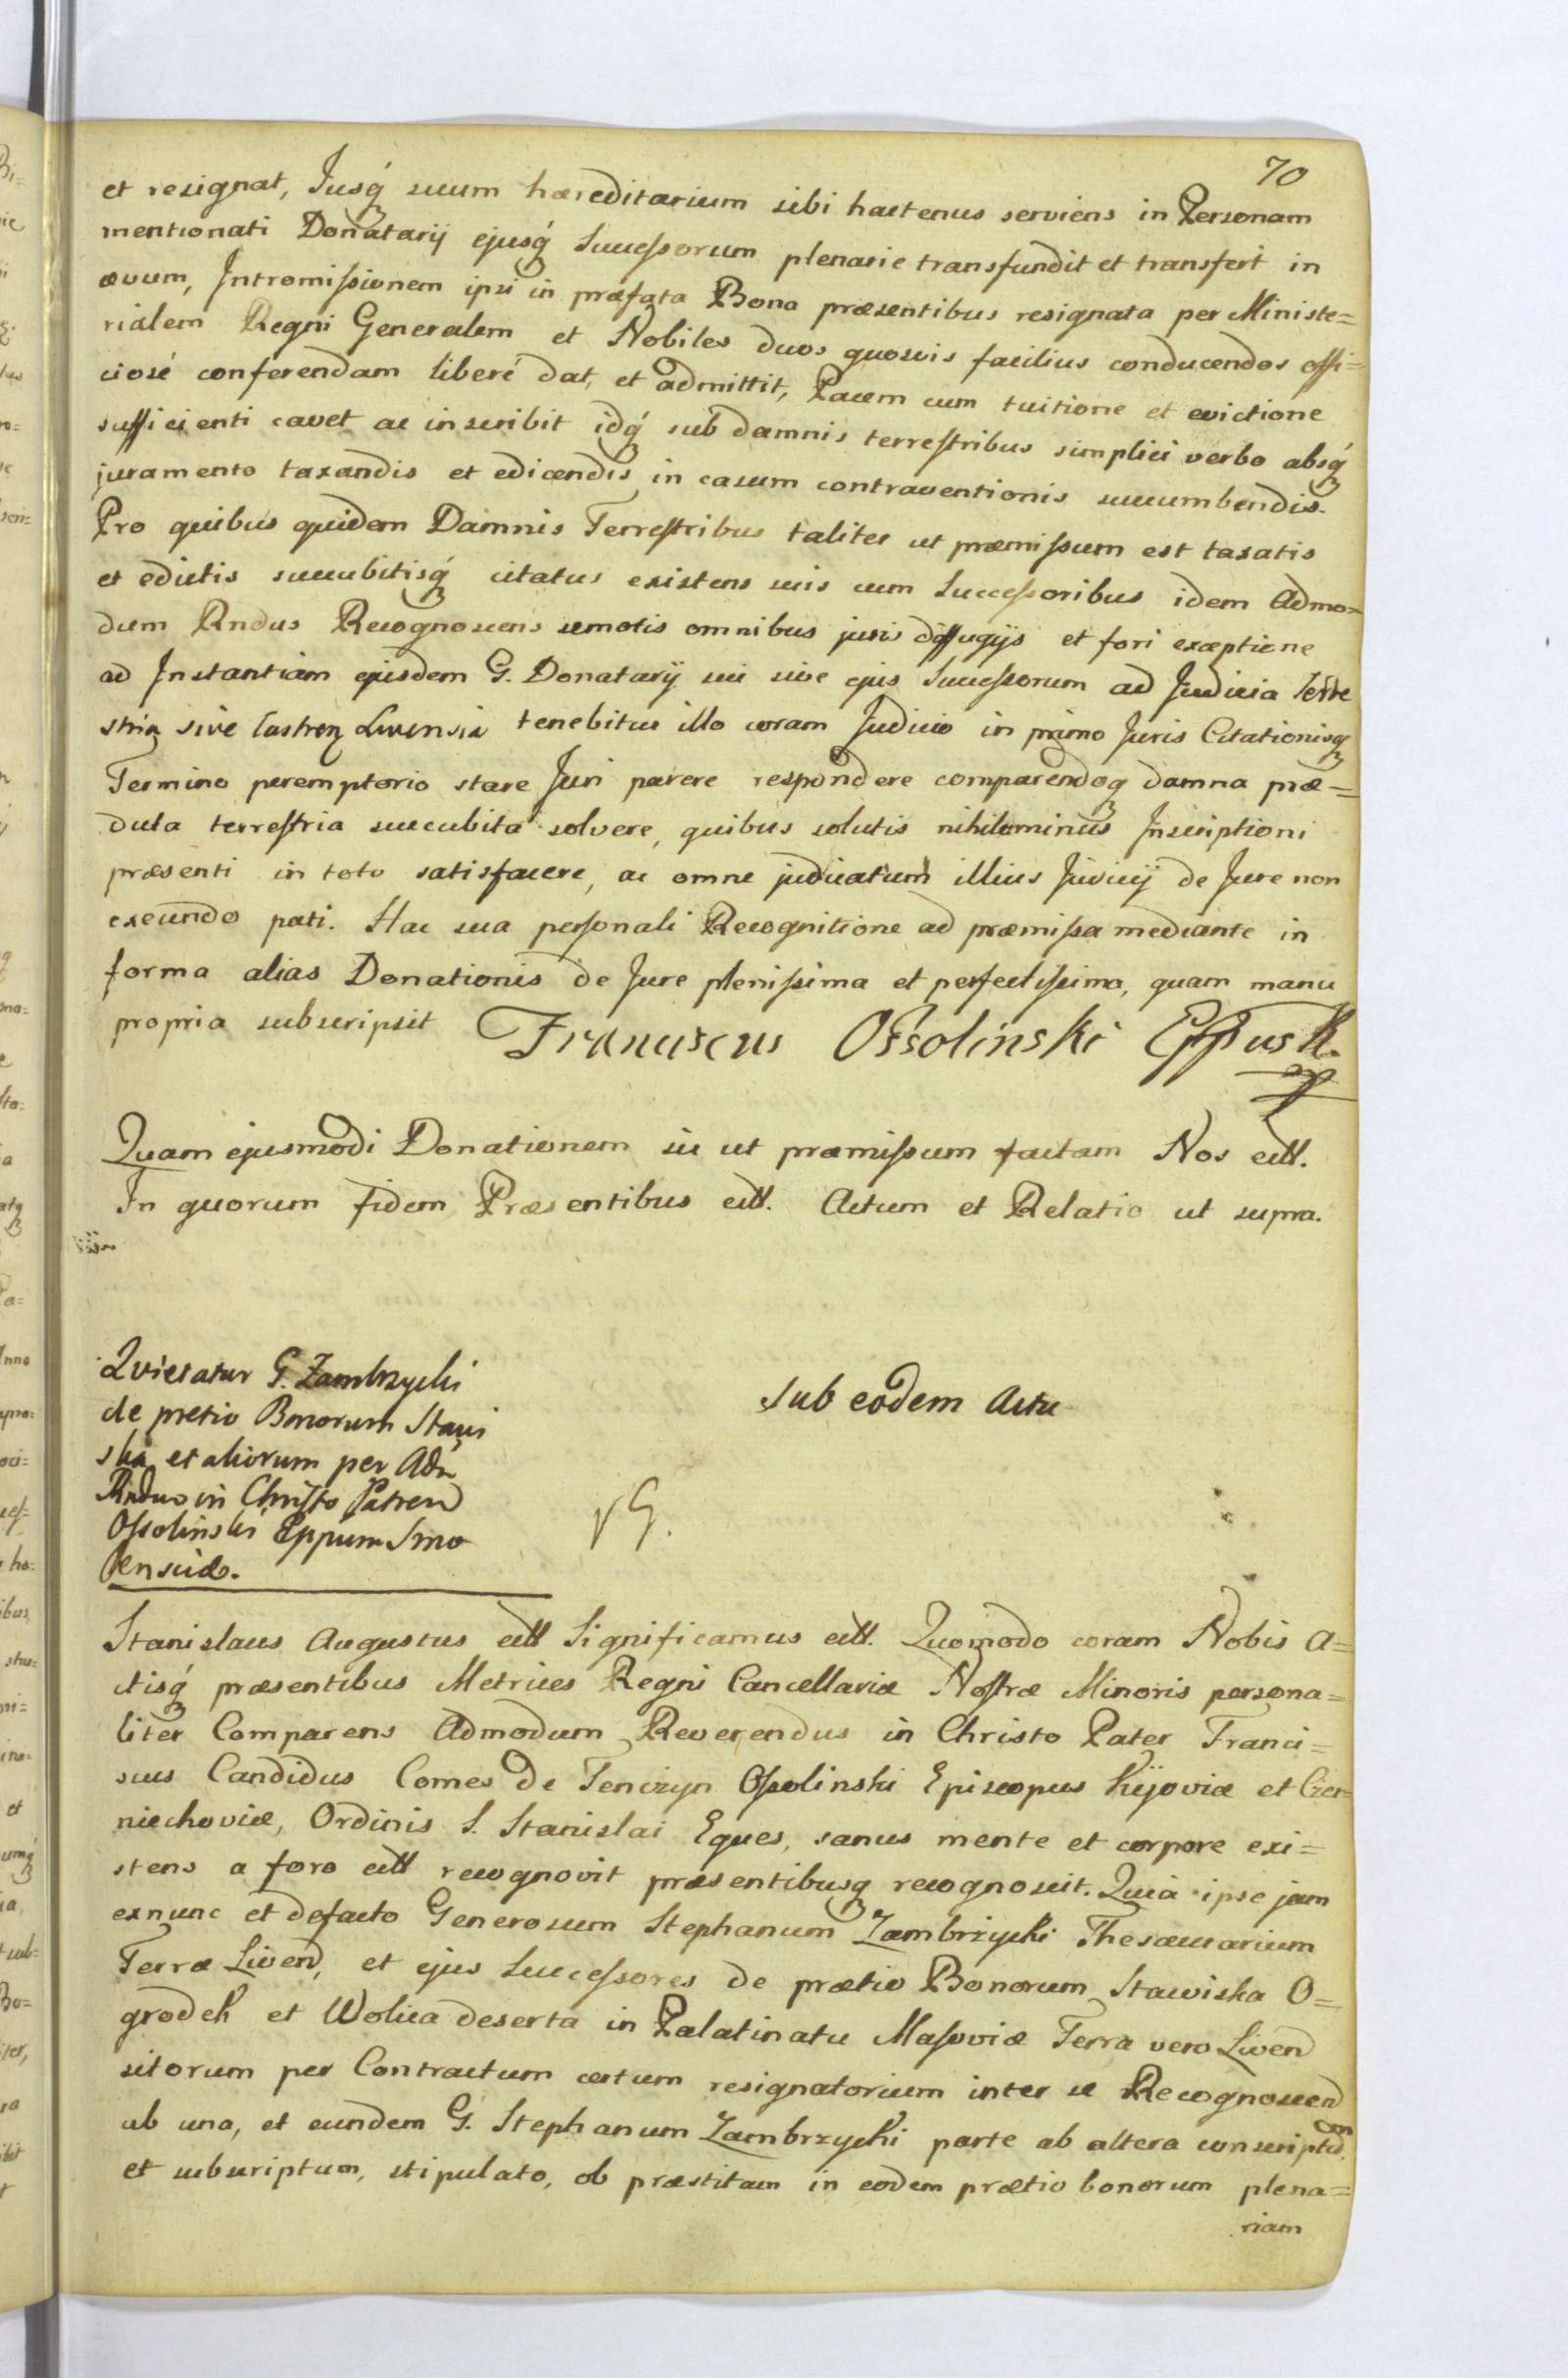 70
et resignat, Jusq́ suum hæreditarium sibi hactenus serviens in Personam
mentionati Donatarij ejusq́ Successorum plenarie transfundit et transfert in
ævum, Intromissionem ipsi in præfata Bona præsentibus resignata per Ministe=
rialem Regni Generalem et Nobiles duos quosvis facilius conducendos offi=
ciosé conferendam liberé dat, et admittit, Pacem cum tuitione et evictione
sufficienti cavet ac inscribit idq́ sub damnis terrestribus simplici verbo absq́
juramento taxandis et edicendis in casum contraventionis succumbendis.
Pro quibus quidem Damnis Terrestribus taliter ut præmissum est taxatis
et edictis succubitisq́ citatus existens suis cum Successoribus idem Admo=
dum Rndus Recognoscens semotis omnibus juris diffugijs et fori exceptione
ad Instantiam ejusdem G. Donatarij sui sive ejus Successorum ad Judicia Terre
stria sive Castren Livensia tenebitur illo coram Judicio in primo Juris Citationisq
Termino peremptorio stare Juri parere respondere comparendoq damna præ=
dicta terrestria succubita solvere, quibus solutis nihilominus Inscriptioni
præsenti in toto satisfacere, ac omne judicatum illius Judicij de Jure non
exeundo pati. Hac sua personali Recognitione ad præmissa mediante in
forma alias Donationis de Jure plenissima et perfectissima, quam manu
propria subscripsit Franciscus Ossolinski Eppus K.
Quam ejusmodi Donationem sic ut præmissum factam Nos ett.
In quorum fidem Præsentibus ett. Actum et Relatio ut supra.
Quietatur G. Zambrzycki
de pretio Bonorum Stawi
ska et aliorum per Adm
Rndum in Christo Patrem
Ossolinski Eppum Smo
lenscie.
Sub eodem Actu
Stanislaus Augustus ett Significamus ett. Quomodo coram Nobis A=
ctisq́ præsentibus Metrices Regni Cancellariæ Nostræ Minoris persona=
liter Comparens Admodum Reverendus in Christo Pater Franci=
scus Candidus Comes de Tenczyn Ossolinski Episcopus Kijoviæ et Czer=
niechoviæ, Ordinis S. Stanislai Eques, sanus mente et corpore exi=
stens a foro ett recognovit præsentibusq recognoscit. Quià ipse jam
exnunc et defacto Generosum Stephanum Zambrzycki Thesaurarium
Terræ Livend, et ejus Successores de prætio Bonorum Stawiska O=
grodek et Wolica deserta in Palatinatu Masoviæ Terra vero Livend
sitorum per Contractum certum resignatorium inter se Recognoscend
ab una, et eundem G. Stephanum Zambrzycki parte ab altera conscriptum
et subscriptum, stipulato, ob præstitam in eodem prætio bonorum plena=
riam